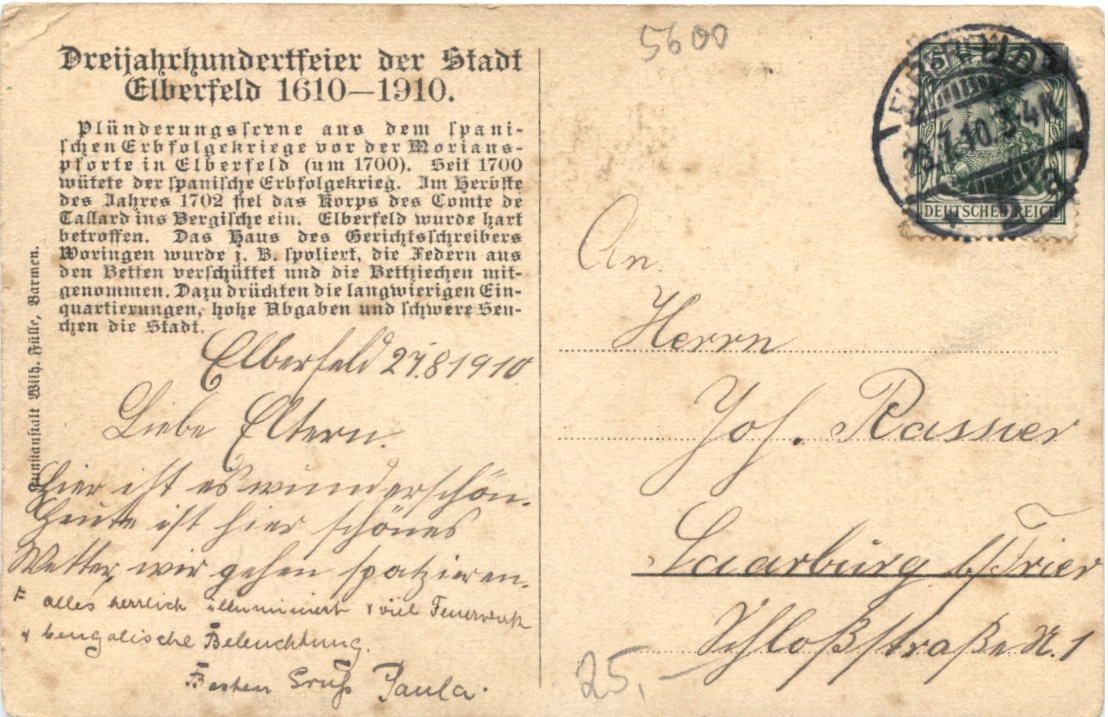 5600
Dreijahrhundertfeier der Stadt
Elberfeld 1610—1910.
Plünderungsscene aus dem spani-
schen Erbfolgekriege vor der Morians-
pforte in Elberfeld (um 1700). Seit 1700
wütete der spanische Erbfolgekrieg. Im Herbste
des Jahres 1702 fiel das Korps des Comte de
Tallard ins Bergische ein. Elberfeld wurde hart
betroffen. Das Haus des Gerichtsschreibers
Woringen wurde z. B. spoliert, die Federn aus
den Betten verschüttet und die Bettziechen mit-
genommen. Dazu drückten die langwierigen Ein-
quartierungen, hohe Abgaben und schwere Seu-
chen die Stadt.
Kunstanstalt Wilh. Fülle, Barmen.
Elberfeld 27.8.1910
Liebe Eltern.
Hier ist es wunderschön.
Heute ist hier schönes
Wetter, wir gehen spatzieren.
alles herrlich illuminiert & viel Feuerwerk
& bengalische Beleuchtung.
Besten Gruß Paula.
DEUTSCHES REICH
An
Herrn
Joh. Rassier
Saarburg b/Trier
Schloßstraße N. 1
25,—